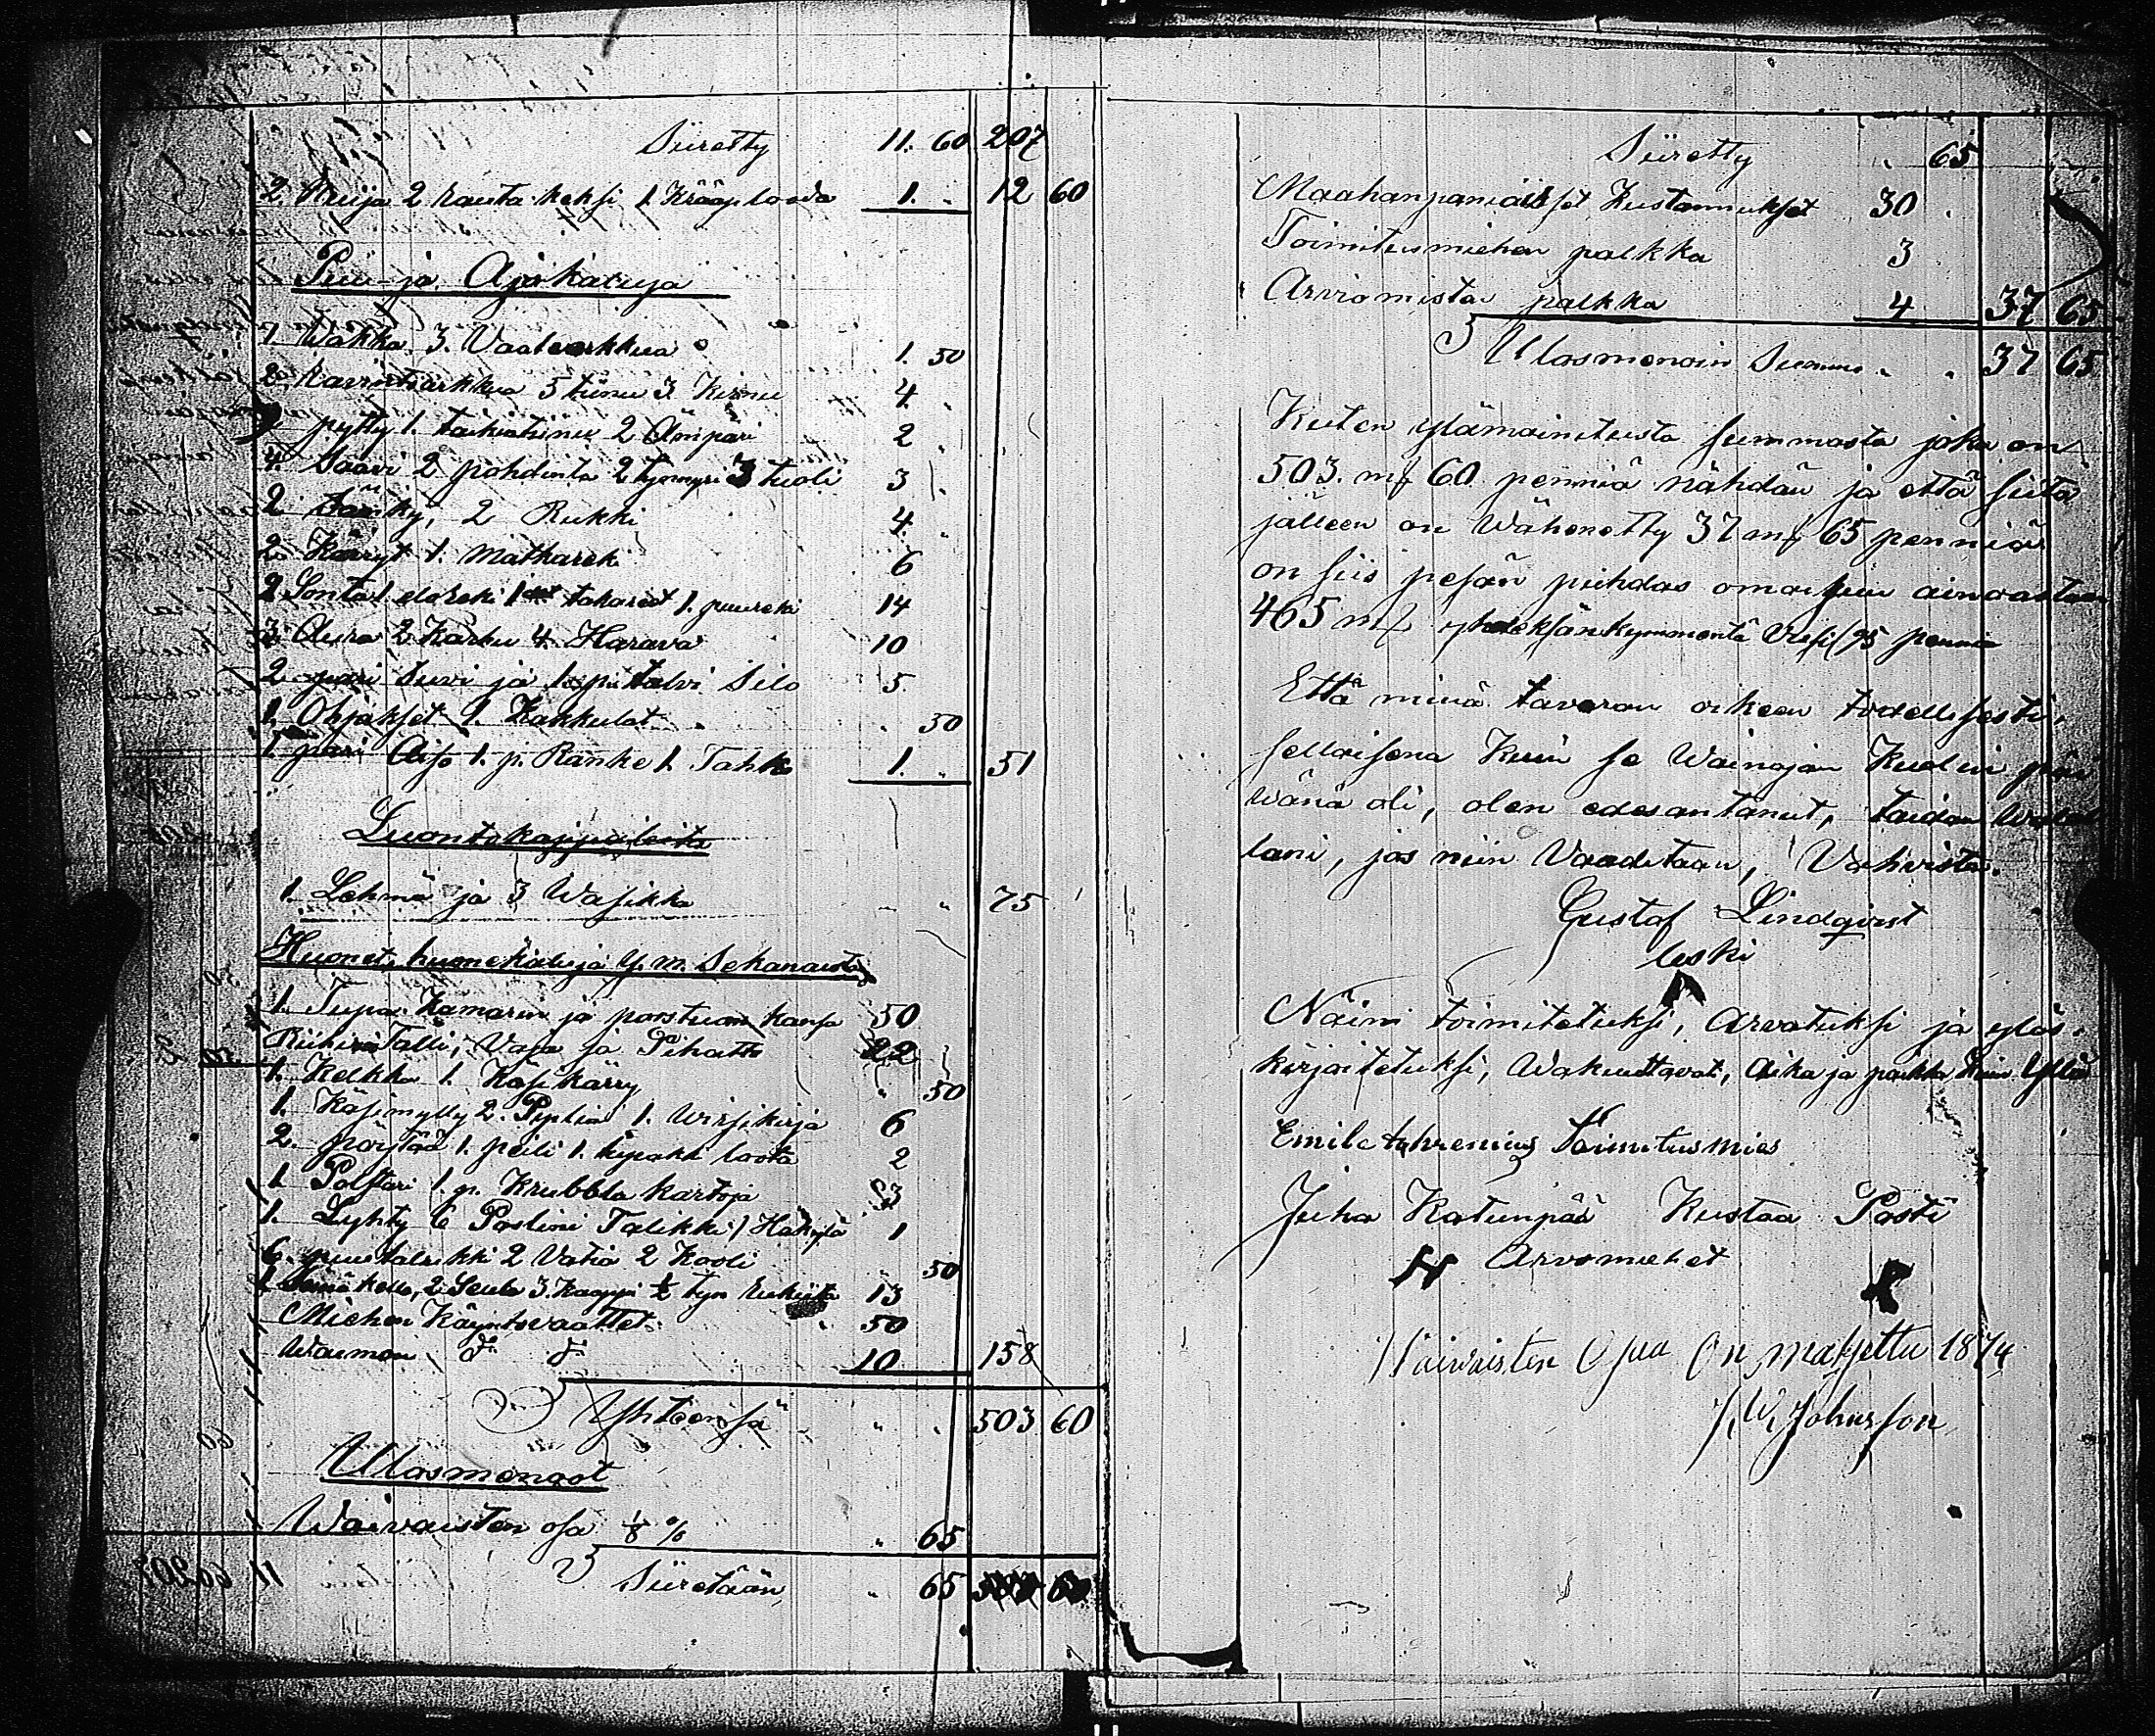 Siiretty 11. 60 207
2. Kuija 2 rauta keksi 1 Krääplooda 1. " 12 60
Puu- ja Ajokaluja
7 Wakka 3. Vaatearkkua 1. 50
2. Eavintoarkkua 5 tiinu 3 Kirnu 4. "
pytty 1. taikiatiinu 2 Ämpäri 2 "
4. Saavi 2 pohdinta 2 tynnyri 3 tuoli 3
2 Sänky, 2 Rukki 4. "
2. Kärryt 1. matkareki 6
2 Lonta 1 eloreki 1 takareet 1. puureki 14
3. Aura 2 Karhu 4. Harava 10
2. pari suvi ja 1 p. talvi Silo 5.
1. Ohjakset 1. Kakkulat " 50
1 pari Aiso 1. p. Ranke 1. Tahko 1. " 51
Luontokappaleita
1. Lehmä ja 3 Wasikka " " 75
Huoneita huonekaluja y. m. Sekanaista
1. Tupa Kamarin ja porstuan kansa 50
Riihi Talli, Vaja ja Pihatto 22
1. Kelkka 1. Käsikärry " 50
1. Käsimylly 2. Piplia 1. Wirsikirja 6
2. pöytää 1. peili 1. tupakki loota 2
1. Polstari 1. p. Krubbla kartoja 3
1. Lyhty 6 Posliini Talikki 1 Hakkylä 1
6. puutalrikki 2 Vatia 2 Kooli " 50
1 Seinäkello, 2 Seula 3. Kaappi ½ tyn Rukiita 13
Miehen Käyntövaattet " 50
Waimon d:o d:o 10 158
Yhteensä " " 503 60
Ulosmenoot
Waivaisten osa 1/8 % " 65
Siiretään " 65
Siiretty " 65
Maahanpaniaiset Kustannukset 30 "
Toimitusmiehen palkka 3
Arvomiesten palkka 4 37 65
Ulosmenoin Summa " " 37 65
Kuten ylämainitusta summasta joka on
503. mk 60 penniä nähdän ja että siitä
jälleen on Wähenetty 37 mk 65 penniä
on siis pesän puhdas omaisuu ainoastaan
465 mk yhdeksänkymmentä Viisi (95 penniä
Että minä tavaran oikeen todellisesti,
sellaisena Kuin se Wainajan Kuolin päi
wänä oli, olen edesantanut, taidan Walal
lani, jos niin Vaaditaan, Vahvistaa.
Gustaf Lindqvist
leski
Näin toimitetuksi, Arvatuksi ja ylös-
kirjoitetuksi, Wakuuttavat, Aika ja paikka Kuin Yllä
Emil Ahrenius Toimitusmies
Juha Katunpää Kustaa Posti
Arvomiehet
Waivaisten Osa On maksettu 1874
J. W. Johnsson